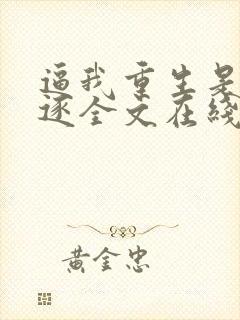 逼我重生是
逐全文在线
黄金忠